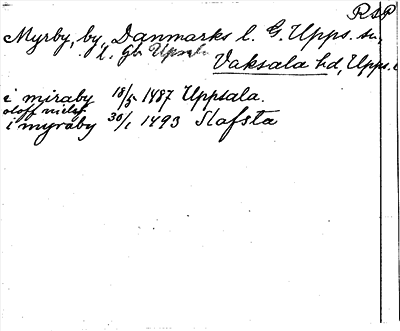 RAP
Myrby, by, Danmarks l. G. Upps. sn,
Vaksala hd, Upps.
i miraby 18/5 1487 Uppsala.
oloff nielss
i myraby 30/1 1493 Slafsta